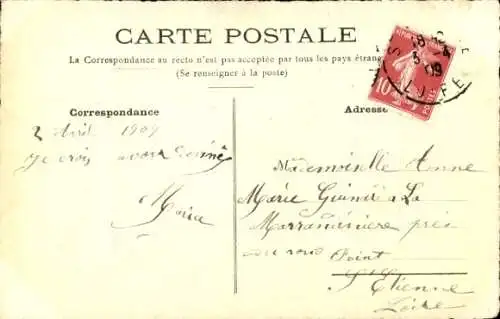 CARTE POSTALE
La Correspondance au recto n'est pas acceptée par tous les pays étrang
(Se renseigner à la poste)
Correspondance
Adresse
2 Avril 1909
Je crois avoir
Maria
Mademoiselle Anne
Marie à La
près
Point
St Etienne
Loire
10
09